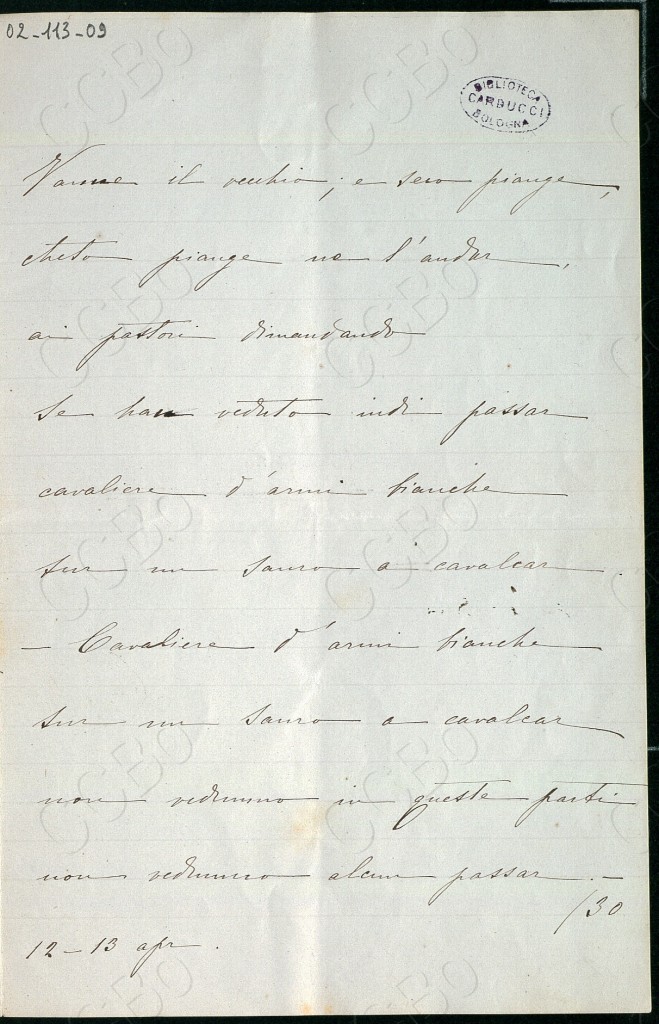 02-113-09
BIBLIOTECA
CARDUCCI
BOLOGNA
Vanne il vecchio; e seco piange,
cheto piange ne l'andar,
ai pastori dimandando
se han veduto indi passar
cavaliere d'armi bianche
sur un sauro a cavalcar.
— Cavaliere d'armi bianche
sur un sauro a cavalcar
non vedemmo in queste parti
non vedemmo alcun passar. —
/30
12-13 apr.
CCBO